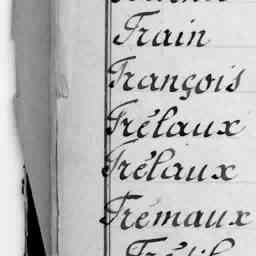 Frain
François
Frélaux
Frélaux
Frémaux